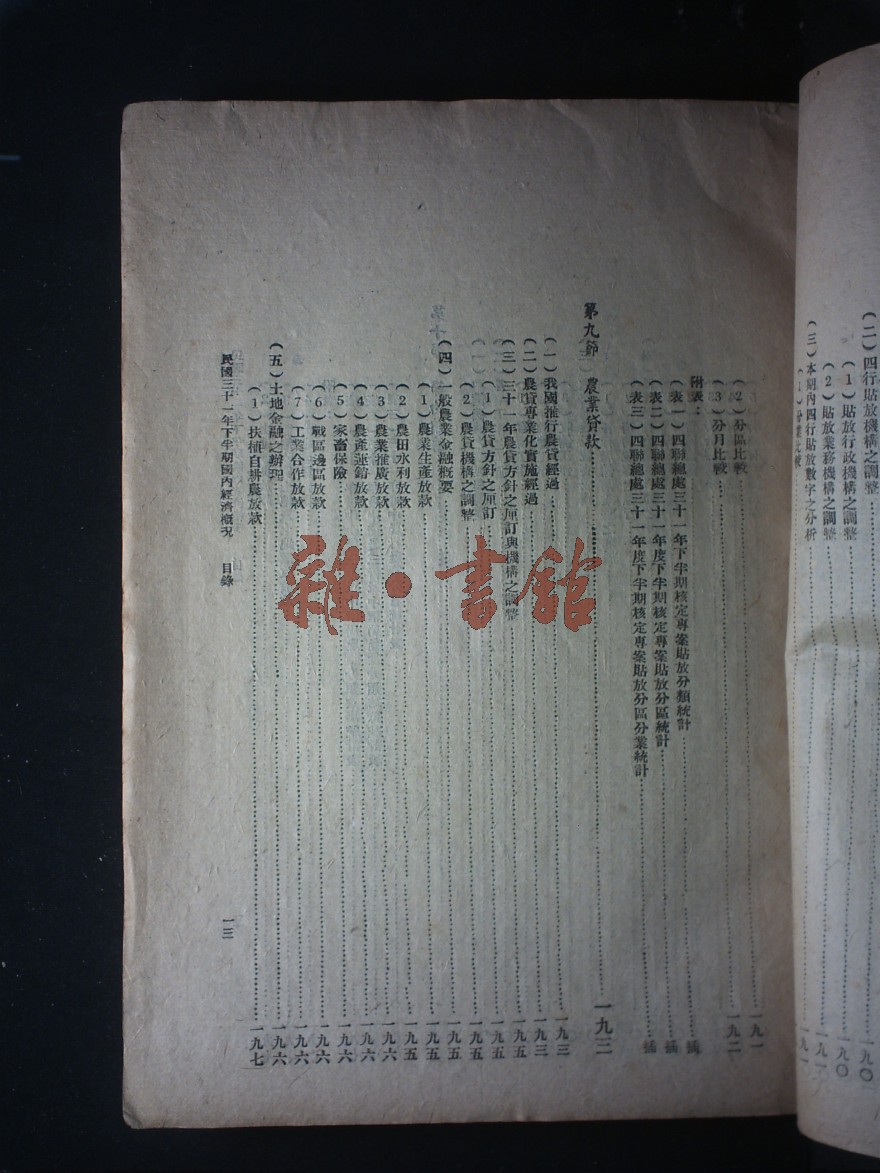 （二）四行貼放機構之調整 一九〇
（1）貼放行政機構之調整 一九〇
（2）貼放業務機構之調整 一九一
（三）本期內四行貼放數字之分析
（1）分業比較
（2）分區比較 一九一
（3）分月比較 一九二
附表：
（表一）四聯總處三十一年下半期核定專案貼放分類統計 插
（表二）四聯總處三十一年度下半期核定專案貼放分區統計 插
（表三）四聯總處三十一年度下半期核定專案貼放分區分業統計 插
第九節 農業貸款 一九三
（一）我國推行農貸經過 一九三
（二）農貸專業化實施經過 一九三
（三）三十一年農貸方針之厘訂與機構之調整 一九五
（1）農貸方針之厘訂 一九五
（2）農貸機構之調整 一九五
（四）一般農業金融概要 一九五
（1）農業生產放款 一九五
（2）農田水利放款 一九五
（3）農業推廣放款 一九六
（4）農產運銷放款 一九六
（5）家畜保險 一九六
（6）戰區邊區放款 一九六
（7）工業合作放款 一九六
（五）土地金融之辦理 一九六
（1）扶植自耕農放款 一九七
民國三十一年下半期國內經濟概況 目錄 一三
雜·書館